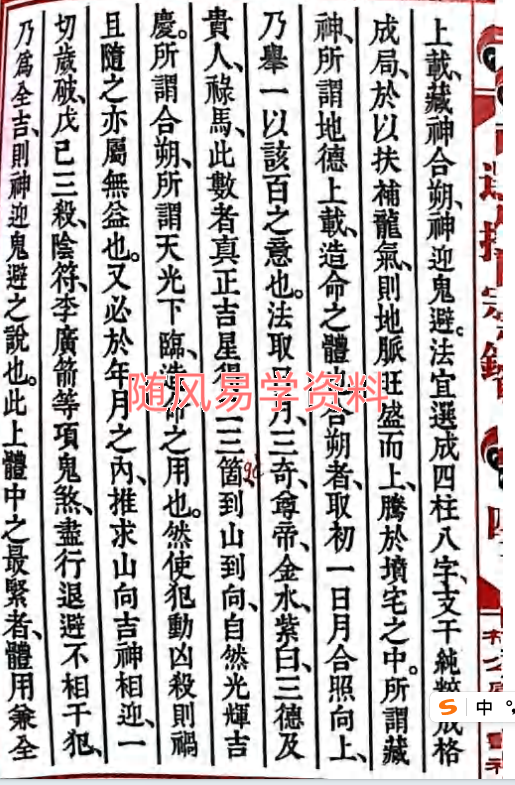 上載、藏神合朔、神迎鬼避。法宜選成四柱八字、支干純粹成格
成局、於以扶補龍氣、則地脈旺盛而上、騰於墳宅之中。所謂藏
神、所謂地德上載、造命之體也。合朔者、取初一日月合照向上、
乃舉一以該百之意也。法取日月、三奇、尊帝、金水、紫白、三德及
貴人、祿馬、此數者真正吉星、得二三箇到山到向、自然光輝吉
慶。所謂合朔、所謂天光下臨、造命之用也。然使犯動凶殺則禍
且隨之亦屬無益也。又必於年月之內、推求山向吉神相迎、一
切歲破、戊己三殺、陰符、李廣箭等項鬼煞、盡行退避不相干犯、
乃為全吉、則神迎鬼避之說也。此上體中之最緊者、體用兼全
随风易学资料
中